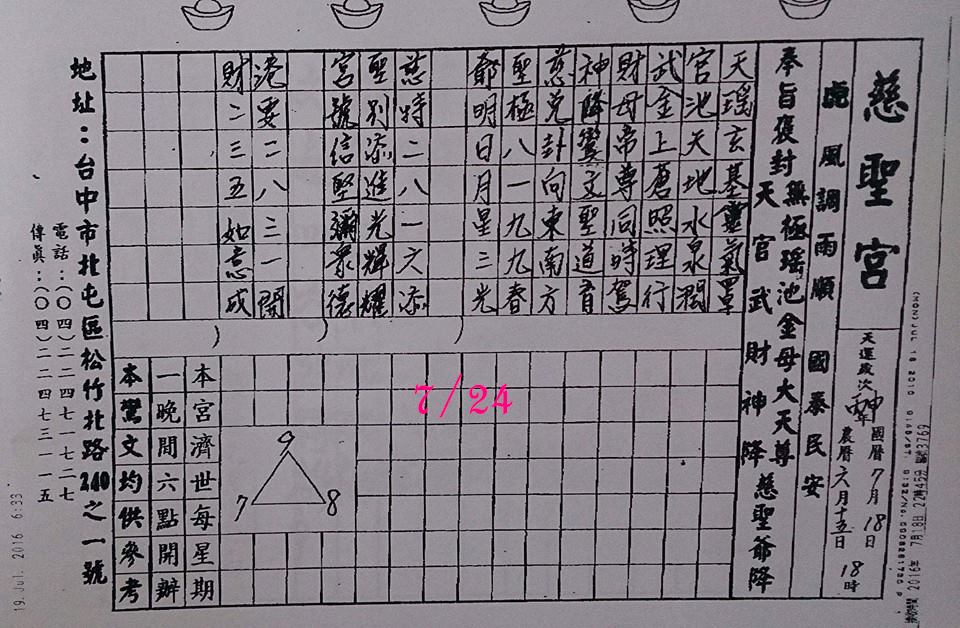 慈聖宮
天運歲次丙申年
國曆7月18日
農曆六月十五日 18時
風調雨順 國泰民安
奉旨褒封
無極瑤池金母大天尊
天官武財神降
慈聖爺降
天瑤玄基靈氣罩
宮池天地水泉潤
武金上蒼照理行
財母帝尊同時駕
神降鸞文聖道育
慈兌卦向東南方
聖極八一九九春
爺明日月星三光
慈特二八一六添
聖別添進光輝耀
宮號信堅彌眾德
港要二八三一開
財二三五如意成
7/24
9
7 8
本宮濟世每星期
一晚間六點開辦
本鸞文均供參考
地址：台中市北屯區松竹北路240之一號
電話：(〇四)二二四七一七二七
傳真：(〇四)二二四七三一一五
2016年 7月18日 22時45分
3769
19.Jul. 2016 6:33